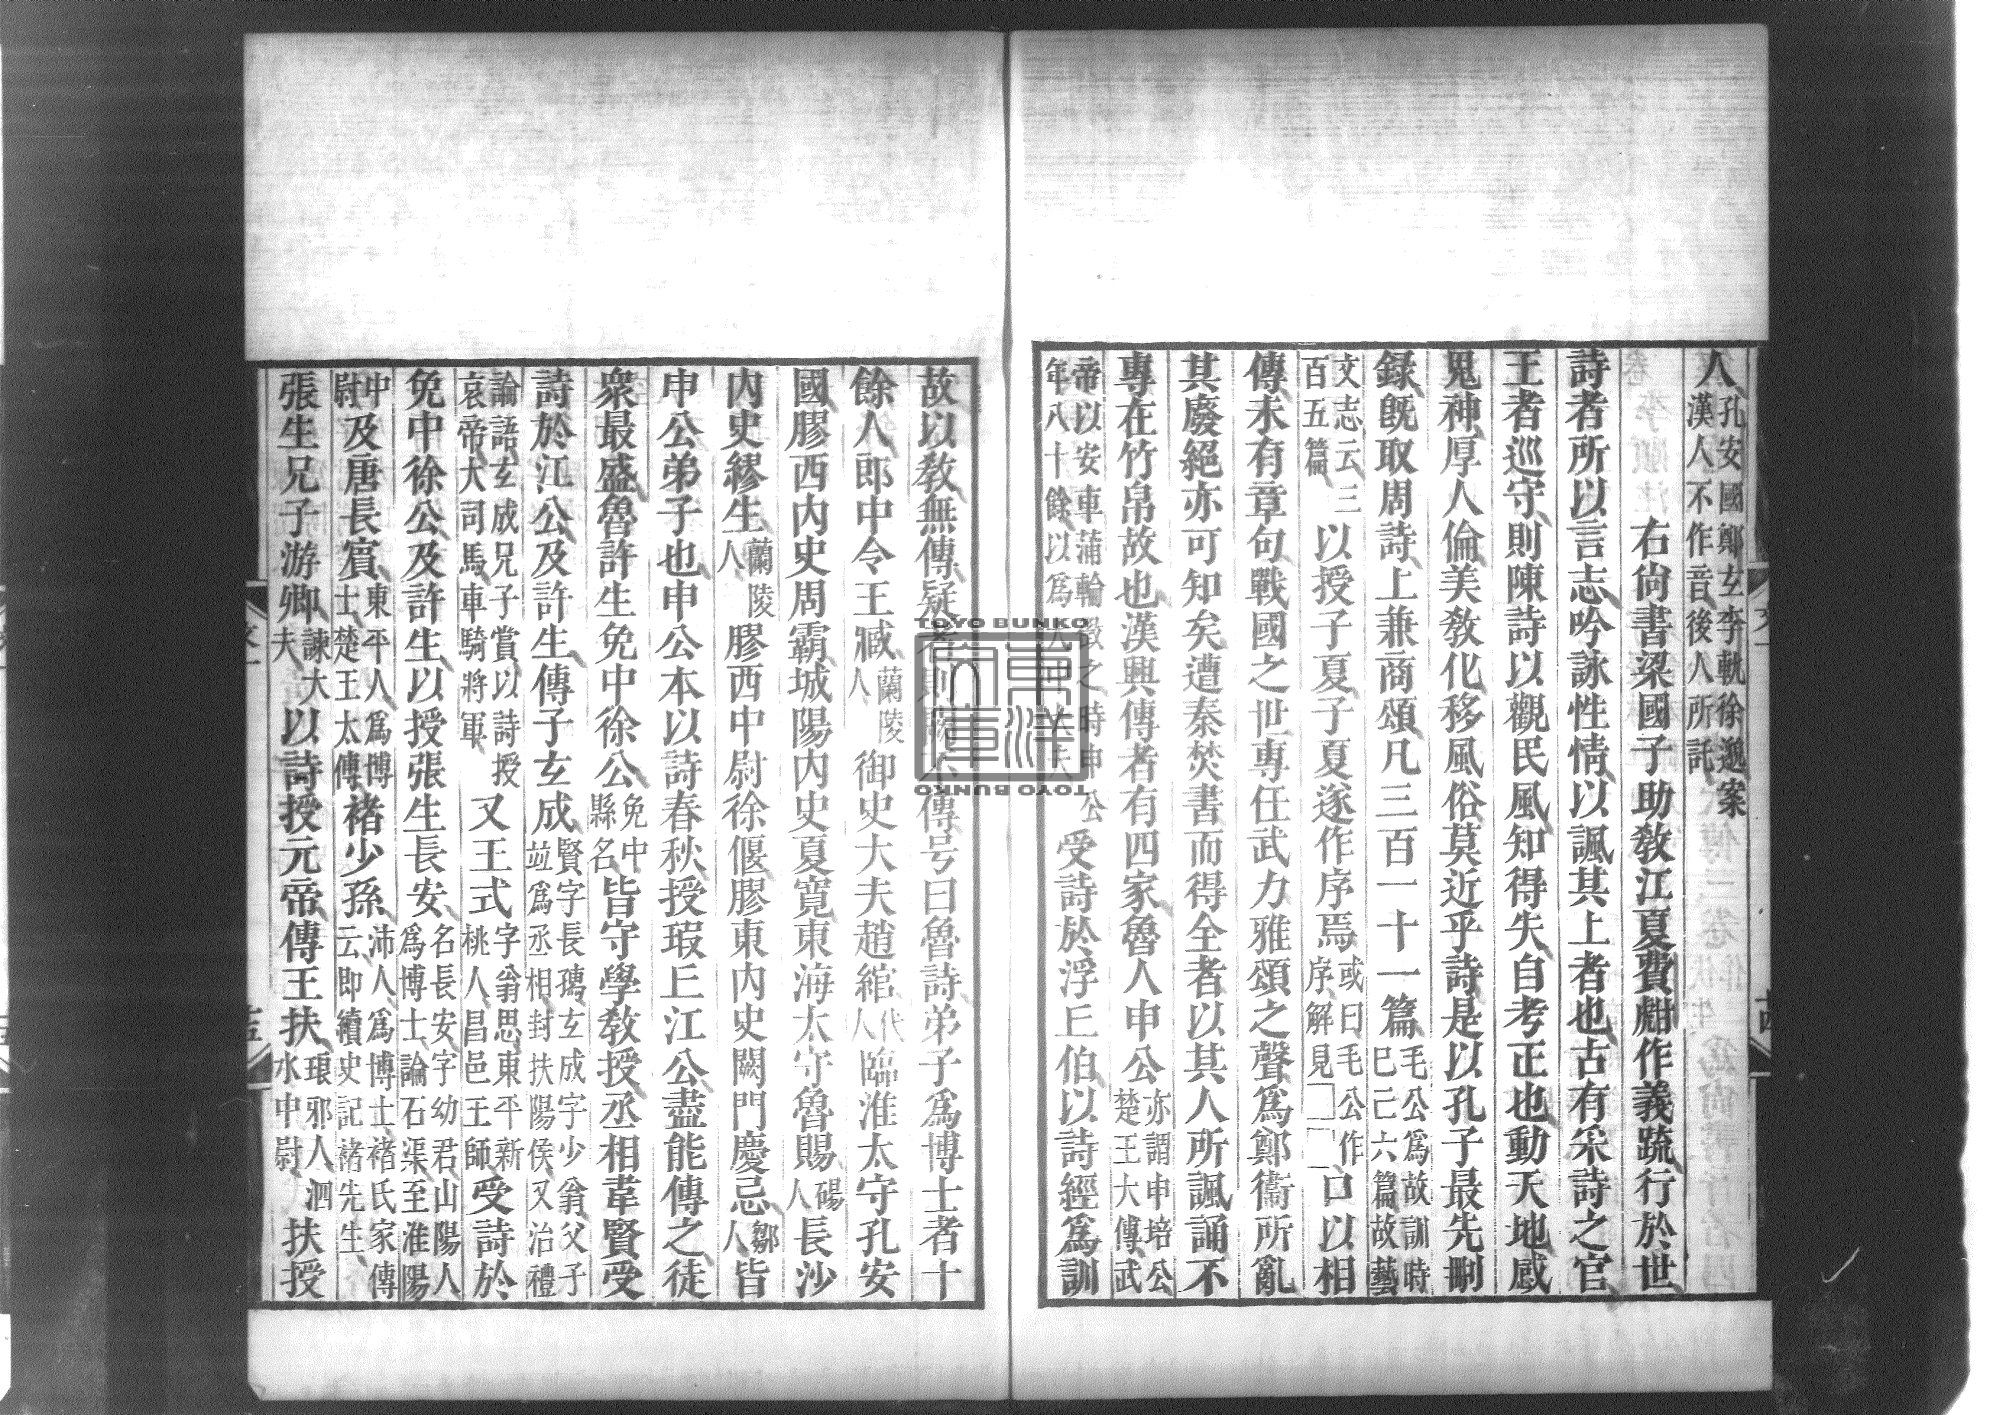 人孔安國鄭玄李軌徐邈案漢人不作音後人所託
右尚書梁國子助教江夏費甝作義疏行於世
詩者所以言志吟詠性情以諷其上者也古有采詩之官
王者巡守則陳詩以觀民風知得失自考正也動天地感
鬼神厚人倫美教化移風俗莫近乎詩是以孔子最先刪
錄旣取周詩上兼商頌凡三百一十一篇毛公爲故訓時巳亡六篇故藝
文志云三百五篇以授子夏子夏遂作序焉或曰毛公作序解見口以相
傳未有章句戰國之世專任武力雅頌之聲爲鄭衞所亂
其廢絕亦可知矣遭秦焚書而得全者以其人所諷誦不
專在竹帛故也漢興傳者有四家魯人申公亦謂申培公楚王大傅武
帝以安車蒲輪之時申公年八十餘以爲受詩於浮丘伯以詩經爲訓
故以教無傳疑傳号曰魯詩弟子爲博士者十
餘人郎中令王臧蘭陵人御史大夫趙綰代人臨淮太守孔安
國膠西內史周霸城陽內史夏寬東海太守魯賜碭人長沙
內史繆生蘭陵人膠西中尉徐偃膠東內史闕門慶忌鄒人皆
申公弟子也申公本以詩春秋授瑕丘江公盡能傳之徒
衆最盛魯許生免中徐公免中縣名皆守學教授丞相韋賢受
詩於江公及許生傳子玄成賢字長孺玄成字少翁父子並爲丞相封扶陽侯又治禮
論語玄成兄子賞以詩授哀帝大司馬車騎將軍又王式字翁思東平新桃人昌邑王師受詩於
免中徐公及許生以授張生長安名長安字幼君山陽人爲博士論石渠至淮陽
中尉及唐長賓東平人爲博士楚王太傅褚少孫沛人爲博士褚氏家傳云即續史記褚先生
張生兄子游卿諫大夫以詩授元帝傳王扶琅邪人泗水中尉扶授
TOYO BUNKO
東洋文庫
TOYO BUNKO